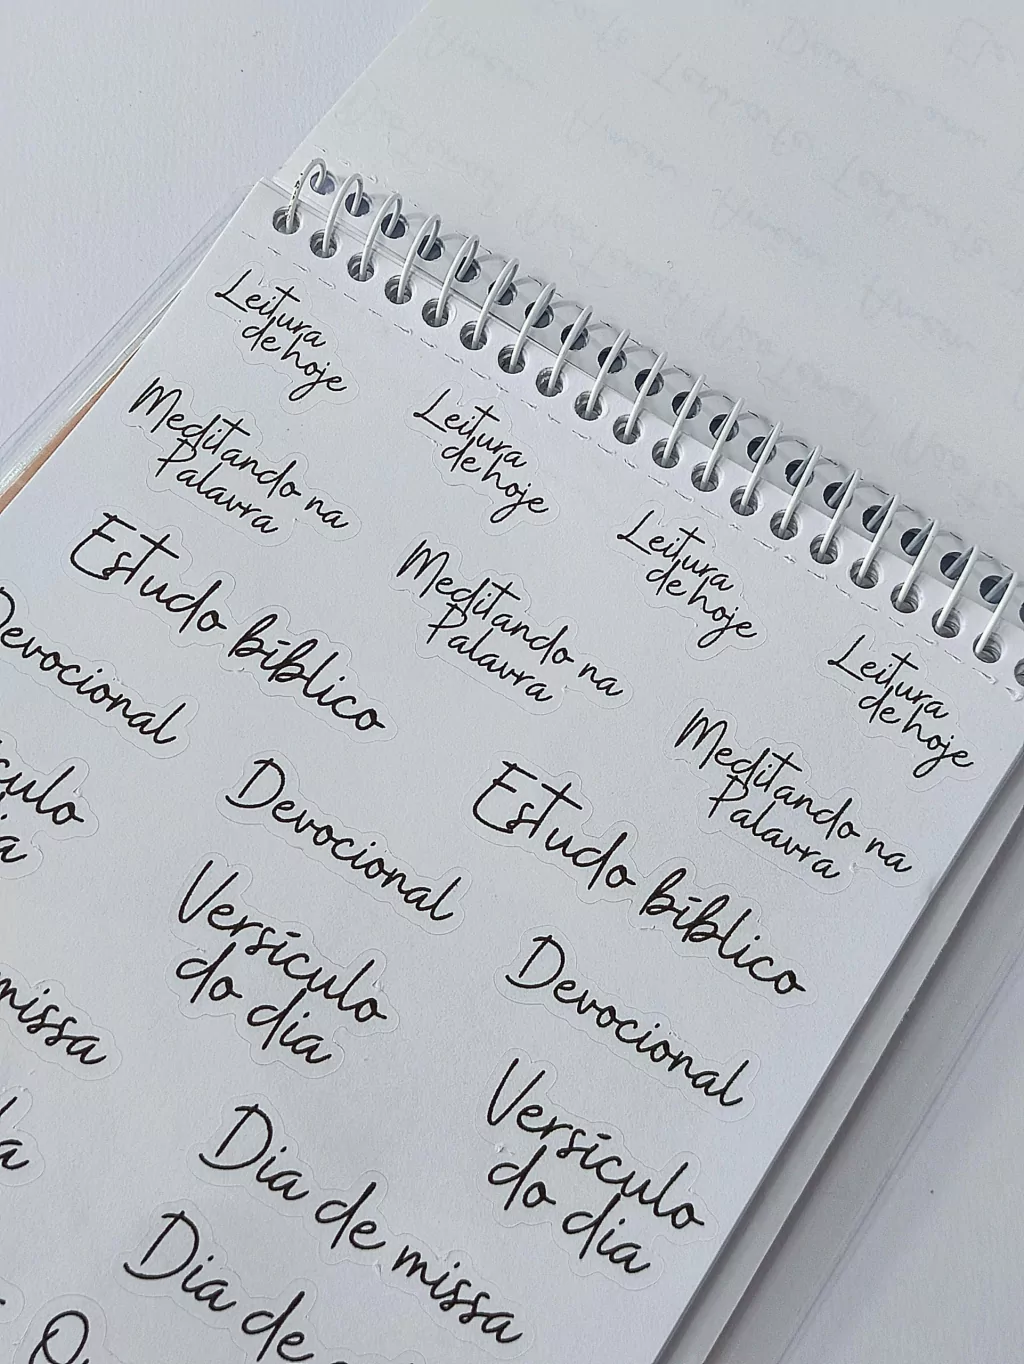 Leitura
de hoje
Leitura
de hoje
Leitura
de hoje
Leitura
de hoje
Meditando na
Palavra
Meditando na
Palavra
Meditando na
Palavra
Estudo bíblico
Estudo bíblico
Devocional
Devocional
Devocional
Versículo
do dia
Versículo
do dia
missa
Dia de missa
Dia de